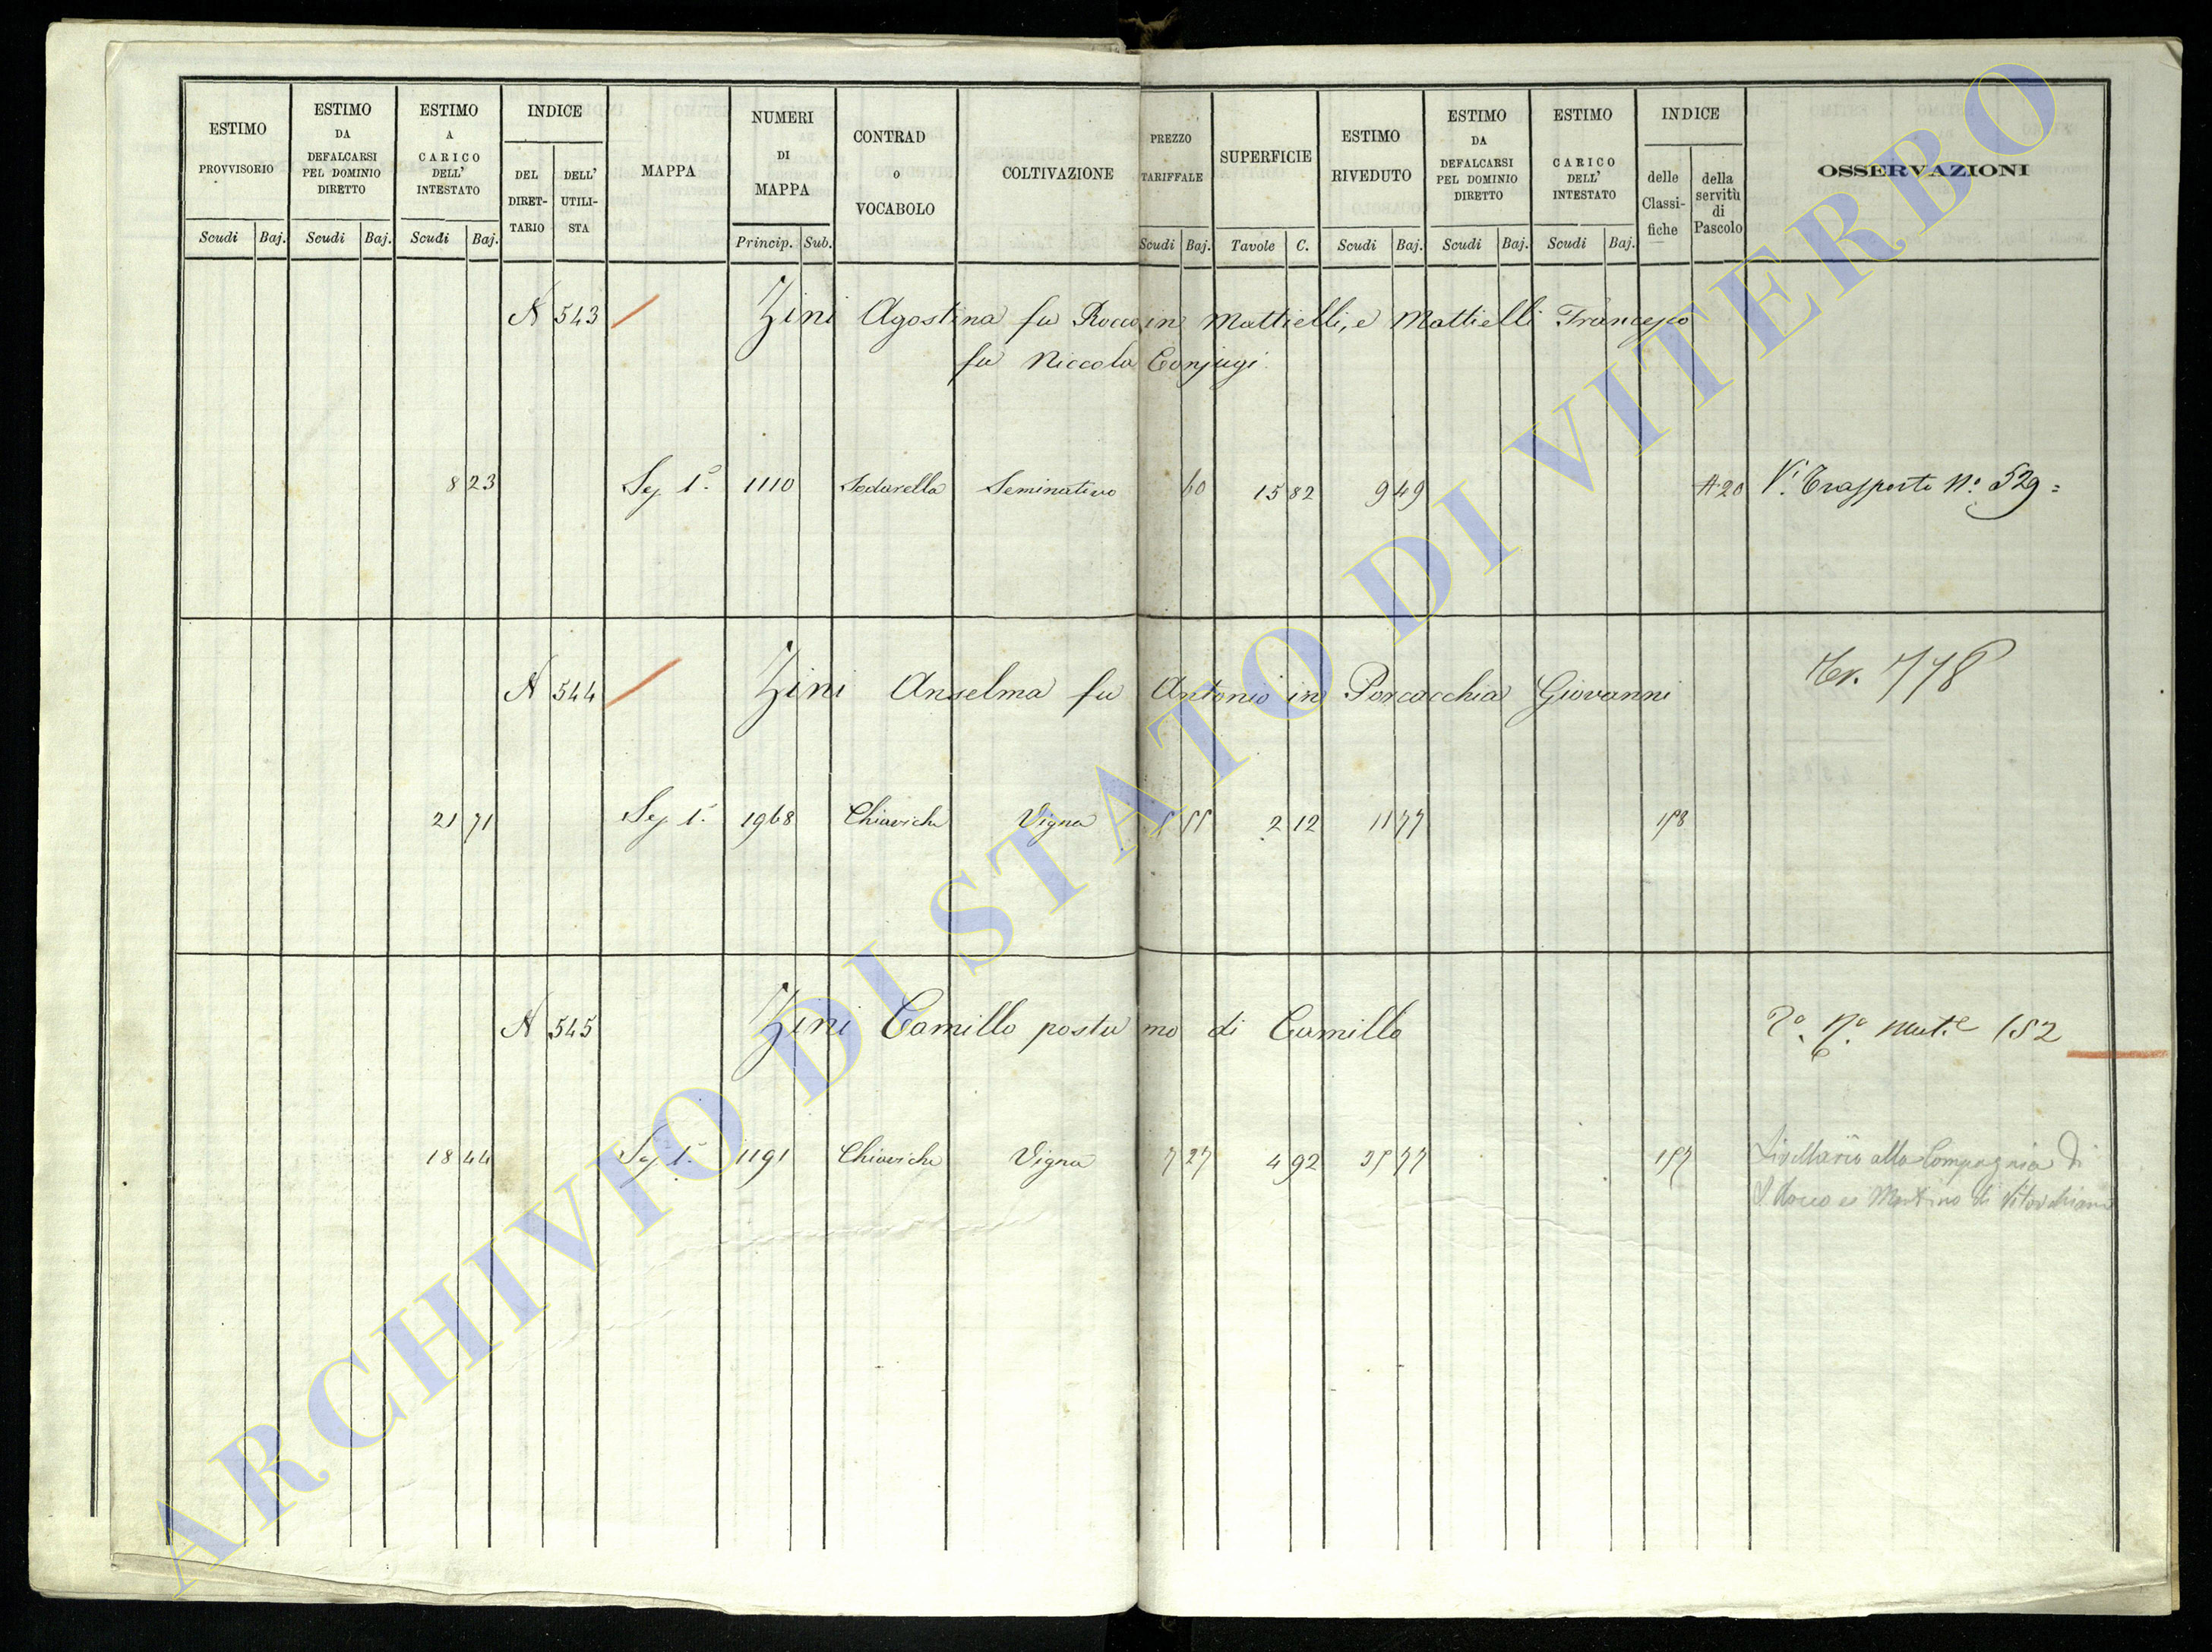 ESTIMO PROVVISORIO
Scudi Baj.
ESTIMO DA DEFALCARSI PEL DOMINIO DIRETTO
Scudi Baj.
ESTIMO A CARICO DELL' INTESTATO
Scudi Baj.
INDICE
DEL DIRET- TARIO
DELL' UTILI- STA
MAPPA
NUMERI DI MAPPA
Princip. Sub.
CONTRAD O VOCABOLO
COLTIVAZIONE
PREZZO TARIFFALE
Scudi Baj.
SUPERFICIE
Tavole C.
ESTIMO RIVEDUTO
Scudi Baj.
ESTIMO DA DEFALCARSI PEL DOMINIO DIRETTO
Scudi Baj.
ESTIMO CARICO DELL' INTESTATO
Scudi Baj.
INDICE
delle Classi- fiche
della servitù di Pascolo
OSSERVAZIONI
N 543 Zini Agostina fu Rocco in Mattielli, e Mattielli Francesco
fu Niccola Conjugi
8 23 Sez 1ª 1110 Sodarella Seminativo 60 15 82 9 49 A 20 Vi Trasporto N.º 529
N 544 Zini Anselma fu Antonio in Porcacchia Giovanni 778
21 71 Sez 1ª 1968 Chiaviche Vigna 5 55 2 12 11 77 158
N 545 Zini Camillo postumo di Camillo 152
18 44 Sez 1ª 1191 Chiaviche Vigna 7 27 4 92 35 77 157 Livellario alla Compagnia di
S. Rocco e Martino di Vitorchiano
ARCHIVIO DI STATO DI VITERBO